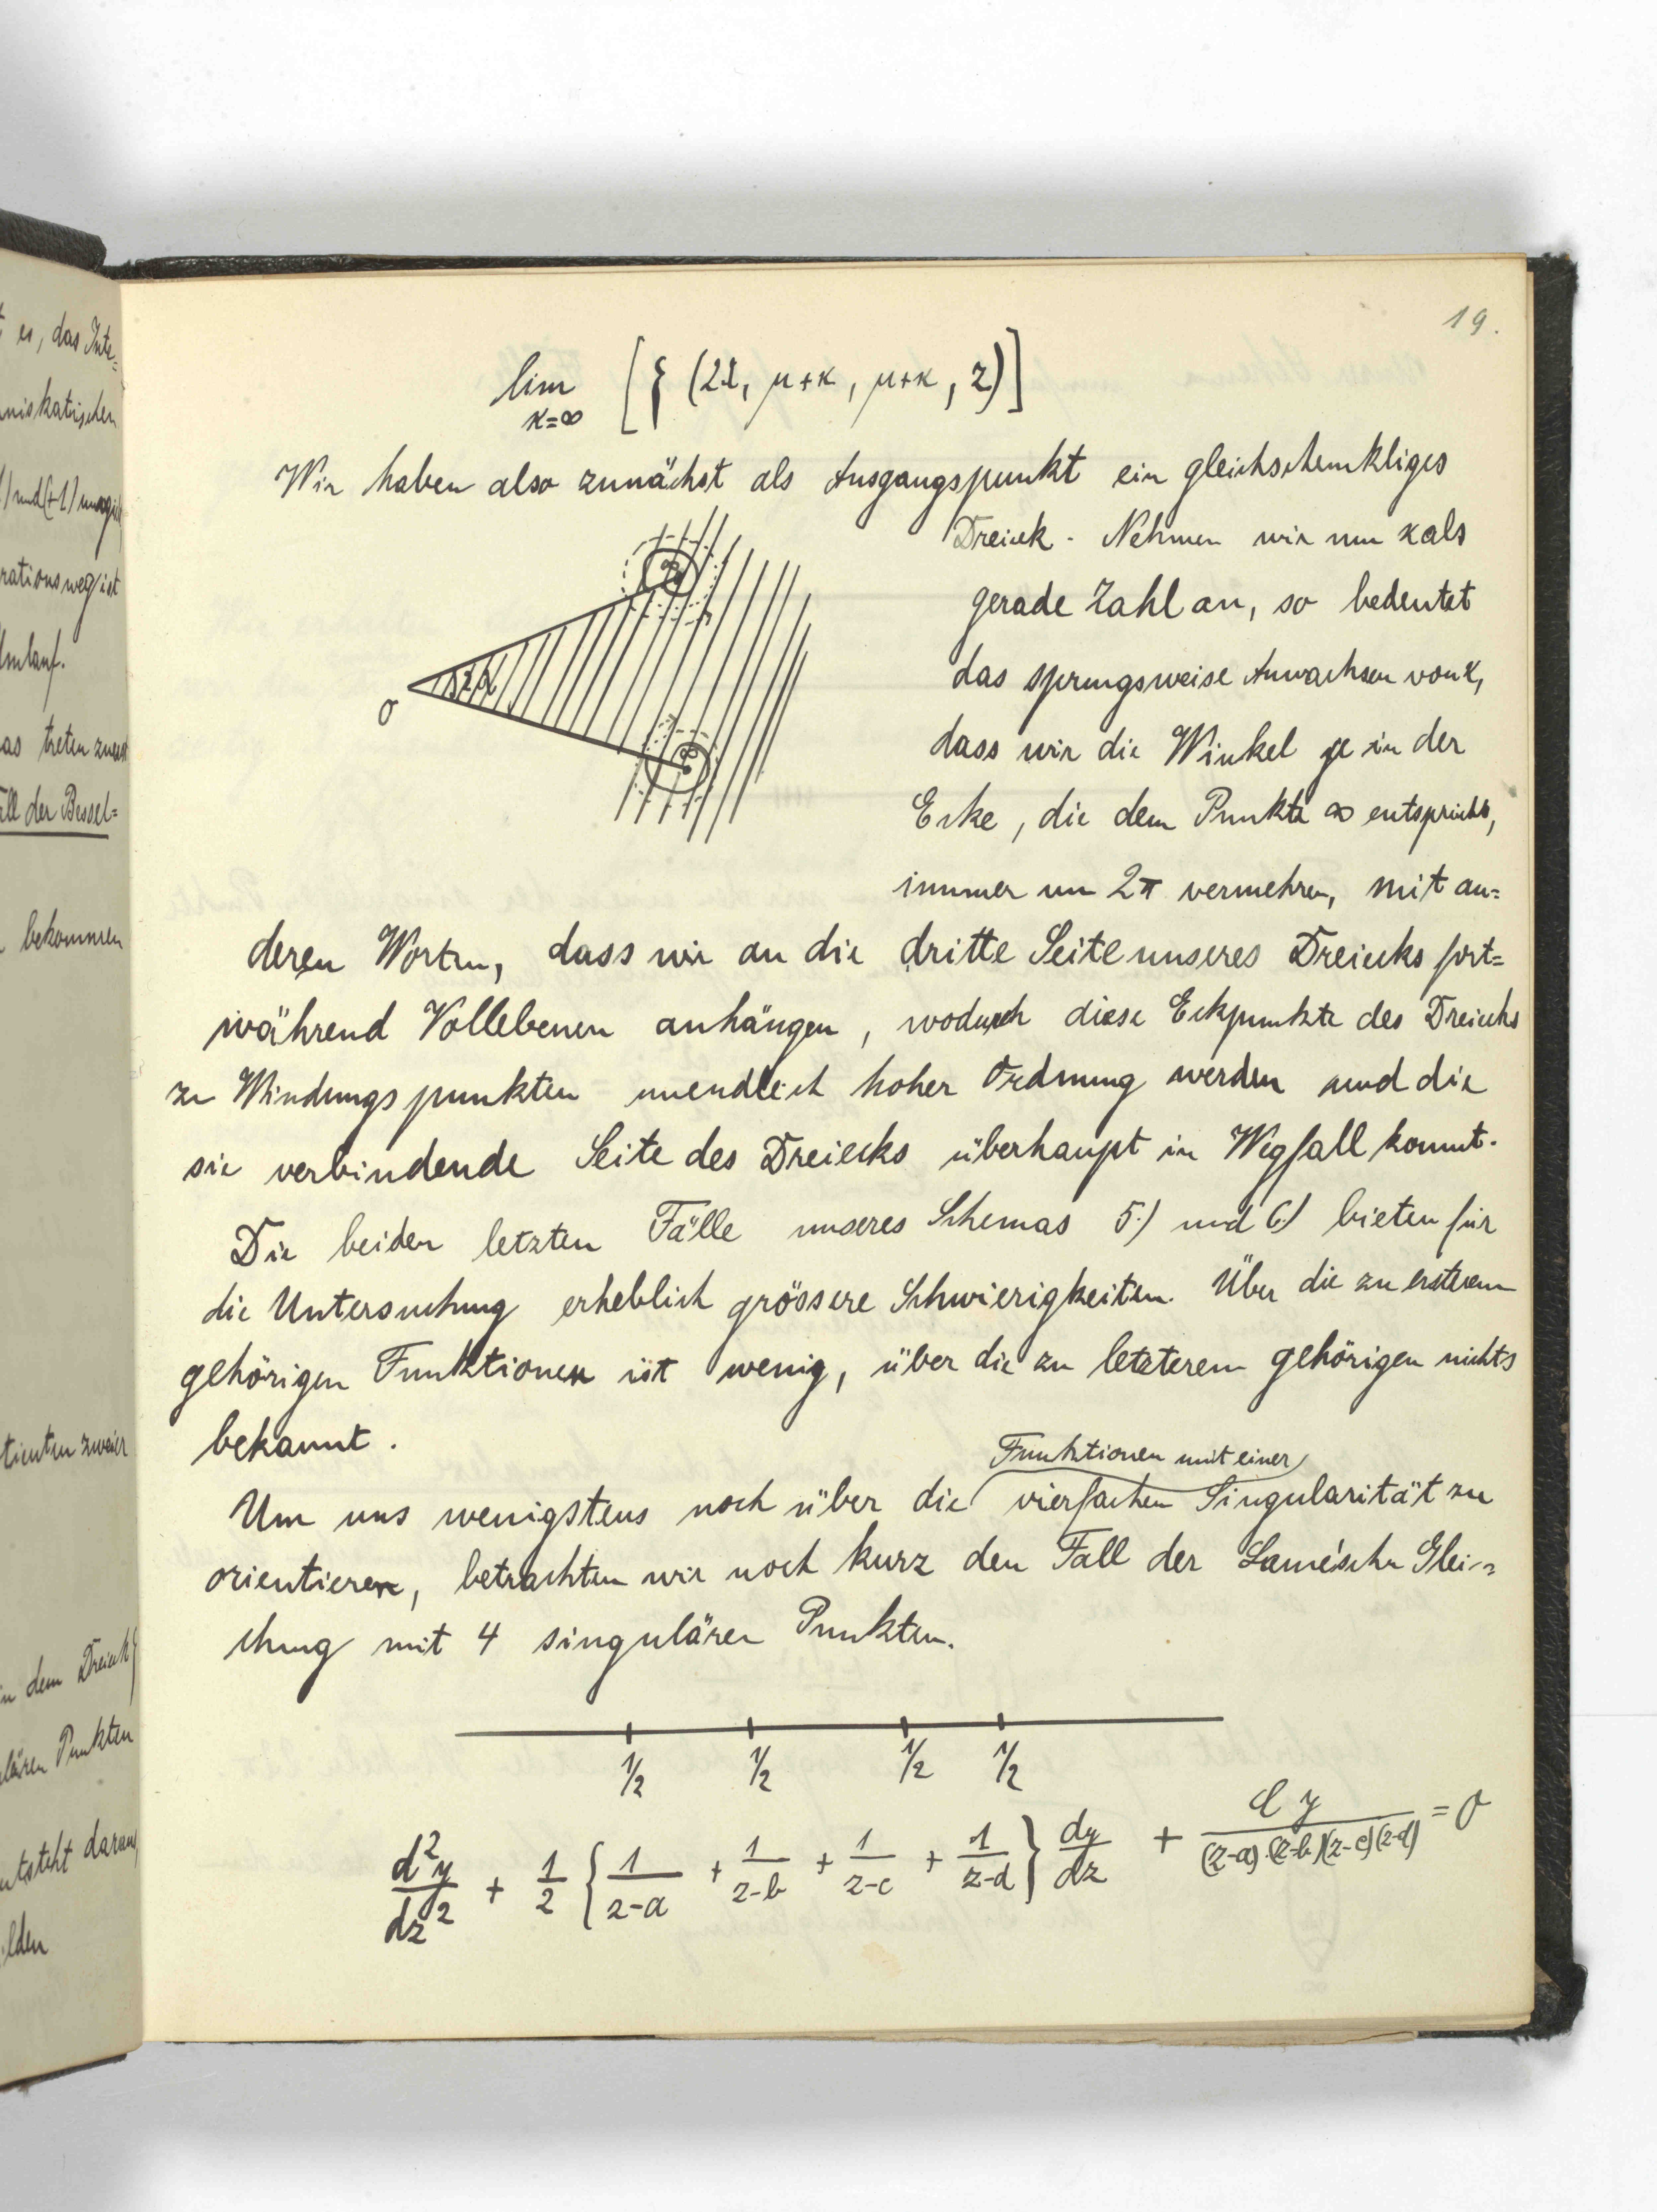 19.
lim [ { (2λ, μ+κ, μ+κ, z) ]
κ=∞
Wir haben also zunächst als Ausgangspunkt ein gleichschenkliges
Dreieck. Nehmen wir nun κ als
gerade Zahl an, so bedeutet
das sprungsweise Anwachsen von κ,
dass wir die Winkel in der
Ecke, die dem Punkte ∞ entspricht,
immer um 2π vermehren, mit an=
deren Worten, dass wir an die dritte Seite unseres Dreiecks fort=
während Vollebenen anhängen, wodurch diese Eckpunkte des Dreiecks
zu Windungspunkten unendlich hoher Ordnung werden und die
sie verbindende Seite des Dreiecks überhaupt in Wegfall kommt.
Die beiden letzten Fälle unseres Schemas 5.) und 6.) bieten für
die Untersuchung erheblich grössere Schwierigkeiten. Über die zu ersterem
gehörigen Funktionen ist wenig, über die zu letzterem gehörigen nichts
bekannt.
Funktionen mit einer
Um uns wenigstens noch über die vierfachen Singularität zu
orientieren, betrachten wir noch kurz den Fall der Lamé'schen Glei=
chung mit 4 singulären Punkten.
1/2 1/2 1/2 1/2
d²y/dz² + 1/2 { 1/(z-a) + 1/(z-b) + 1/(z-c) + 1/(z-d) } dy/dz + Cy/((z-a)(z-b)(z-c)(z-d)) = 0
0
∞
∞
es, das Inte=
niskatischen
rationsweg ist
Umlauf.
as treten zuerst
all der Bessel=
bekommen
tienten zweier
in dem Dreieck
lären Punkten
ntsteht daraus,
ilden